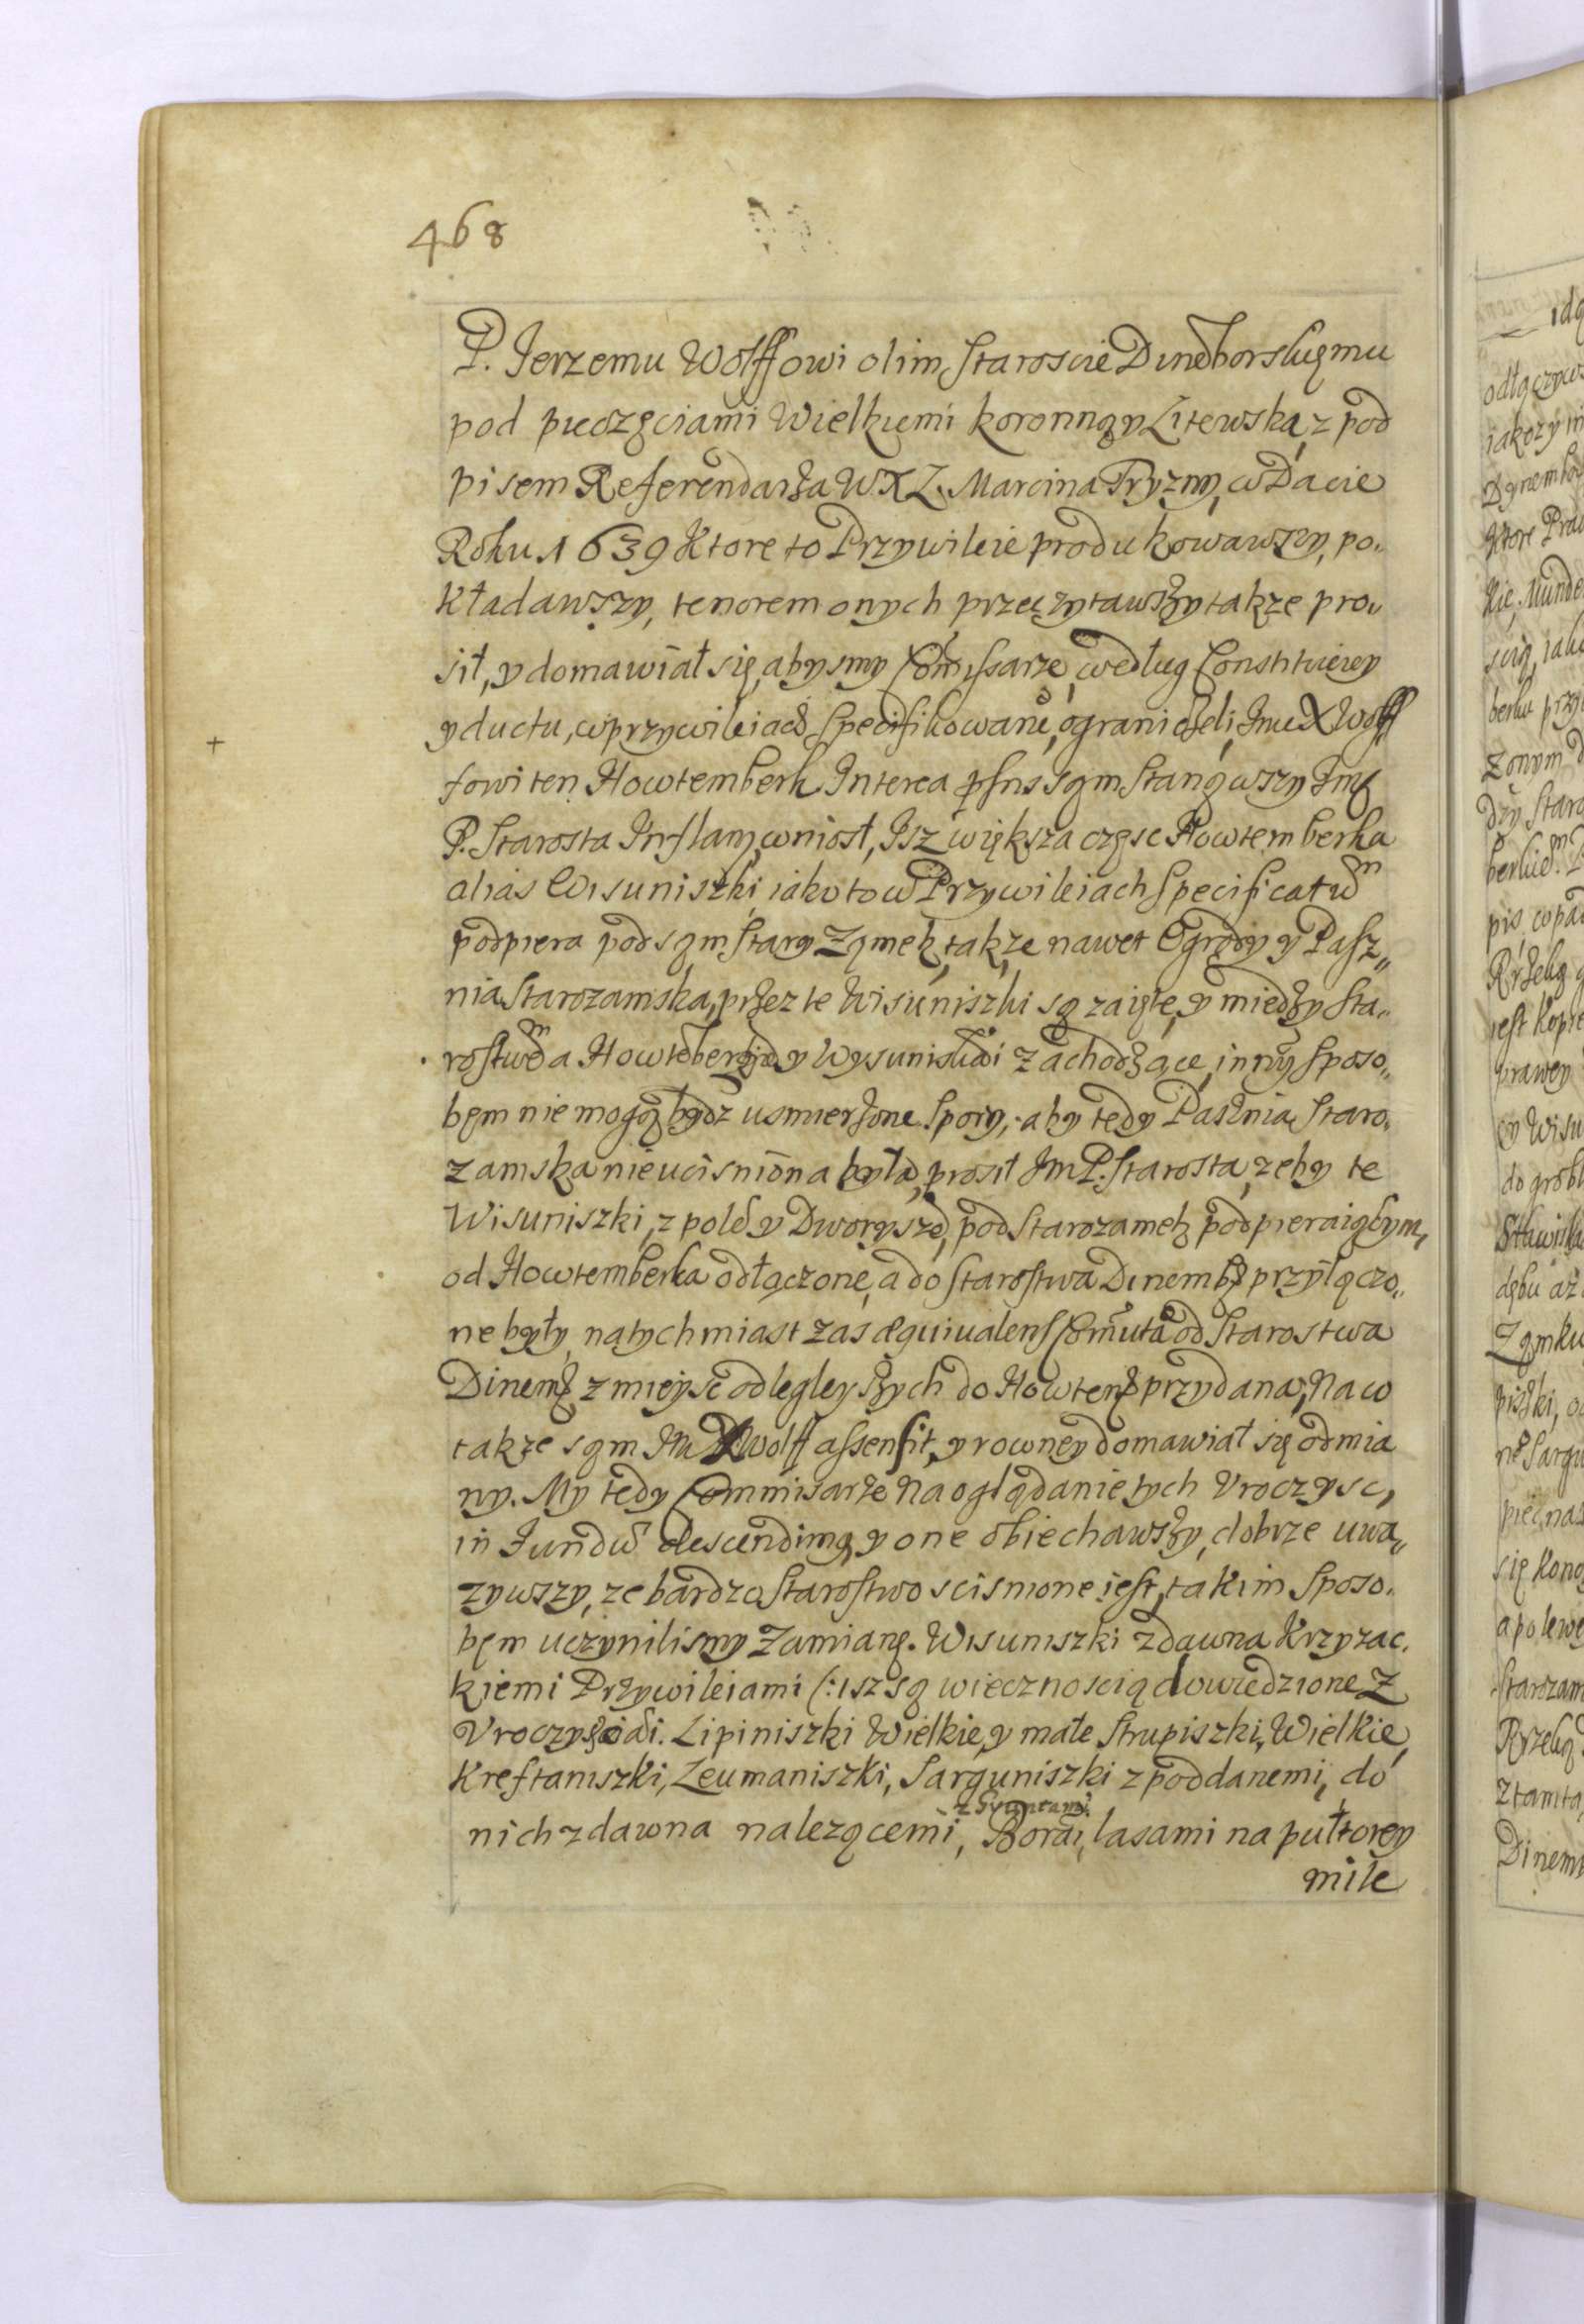 468
P. Jerzemu Wolffowi olim Staroscie Dineborskięmu
pod pieczęciami Wielkiemi koronną y Litewską, z pod
pisem Referendarża WXL. Marcina Tryzny, w Dacie
Roku 1639 Ktore to Przywileie produkowawszy, po„
kładawszy, tenorem onych przeczytawszy także pro„
sił, y domawiał się, abysmy Com̃issarze, według Constituciey
y ductu, w przywileiach specifikowane, ograniczeli Jmc X Wolff
fowi ten Howtemberk Interea sąm Stanąwszy Jmę
P. Starosta Inflanz, wniosł, Isz większa częsc Howtemberka
alias Wisuniszki, iako to w Przywileiach Specificatum
podpiera pod sąm Stary Zamek, także nawet Ogrody y Pasz„
nia Starozamska, przez te Wisuniszki są zaięte, y miedzy Sta„
rostwem a Howtebergiem y Wysuniskami zachodzące, inny sposo„
bęm nie mogą bydz usmierzone Spory, aby tedy Pasznia Staro„
zamska nie ucisniona była, prosił Jm P. Starosta, zeby te
Wisuniszki, z polem y Dworyszem, pod Starozamek podpieraiącym,
od Howtemberka odłączone, a do Starostwa Dinemb przyłączo„
ne były, natychmiast zas æquiualens Com̃uta od Starostwa
Dinemb z mieysc odlegleyszych do Howtemb przydana, Na co
także sąm Jm X Wolff assensit, y rowney domawiał się odmia
ny. My tedy Commisarze Na oglądanie tych Vroczysc,
in Fundum descendimą, y one obiechawszy, dobrze uwa„
zywszy, ze bardzo Starostwo scisnione iest, takim Sposo„
bęm uczynilismy Zamianę. Wisuniszki zdawna Krzyzac„
kiemi Przywileiami (: isz są wiecznoscią dowiedzione Z
Vroczysciami. Lipiniszki Wielkie, y małe Strupiszki, Wielkie,
Kreftaniszki, Leumaniszki, Sarguniszki z poddanemi, do
z Gruntami
nich zdawna nalezącemi, Borami, lasami na pułtorey
mile